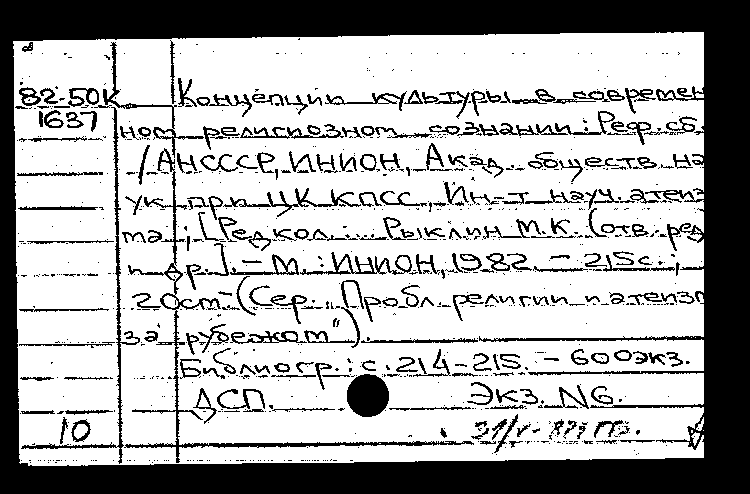 82-50К Концепции культуры в современ
1637 ном религиозном сознании: Реф. сб.
/АНСССР, ИНИОН, Акад. обществ. на
ук при ЦК КПСС, Ин-т науч. атеиз
ма; [Редкол.: ... Рыклин М.К. (отв. ред.)
и др.]. – М.: ИНИОН, 1982. – 215с.;
20см – (Сер. „Пробл. религии и атеизма
за рубежом").
Библиогр.: с. 214-215. – 600экз.
ДСП. Экз. N6.
10